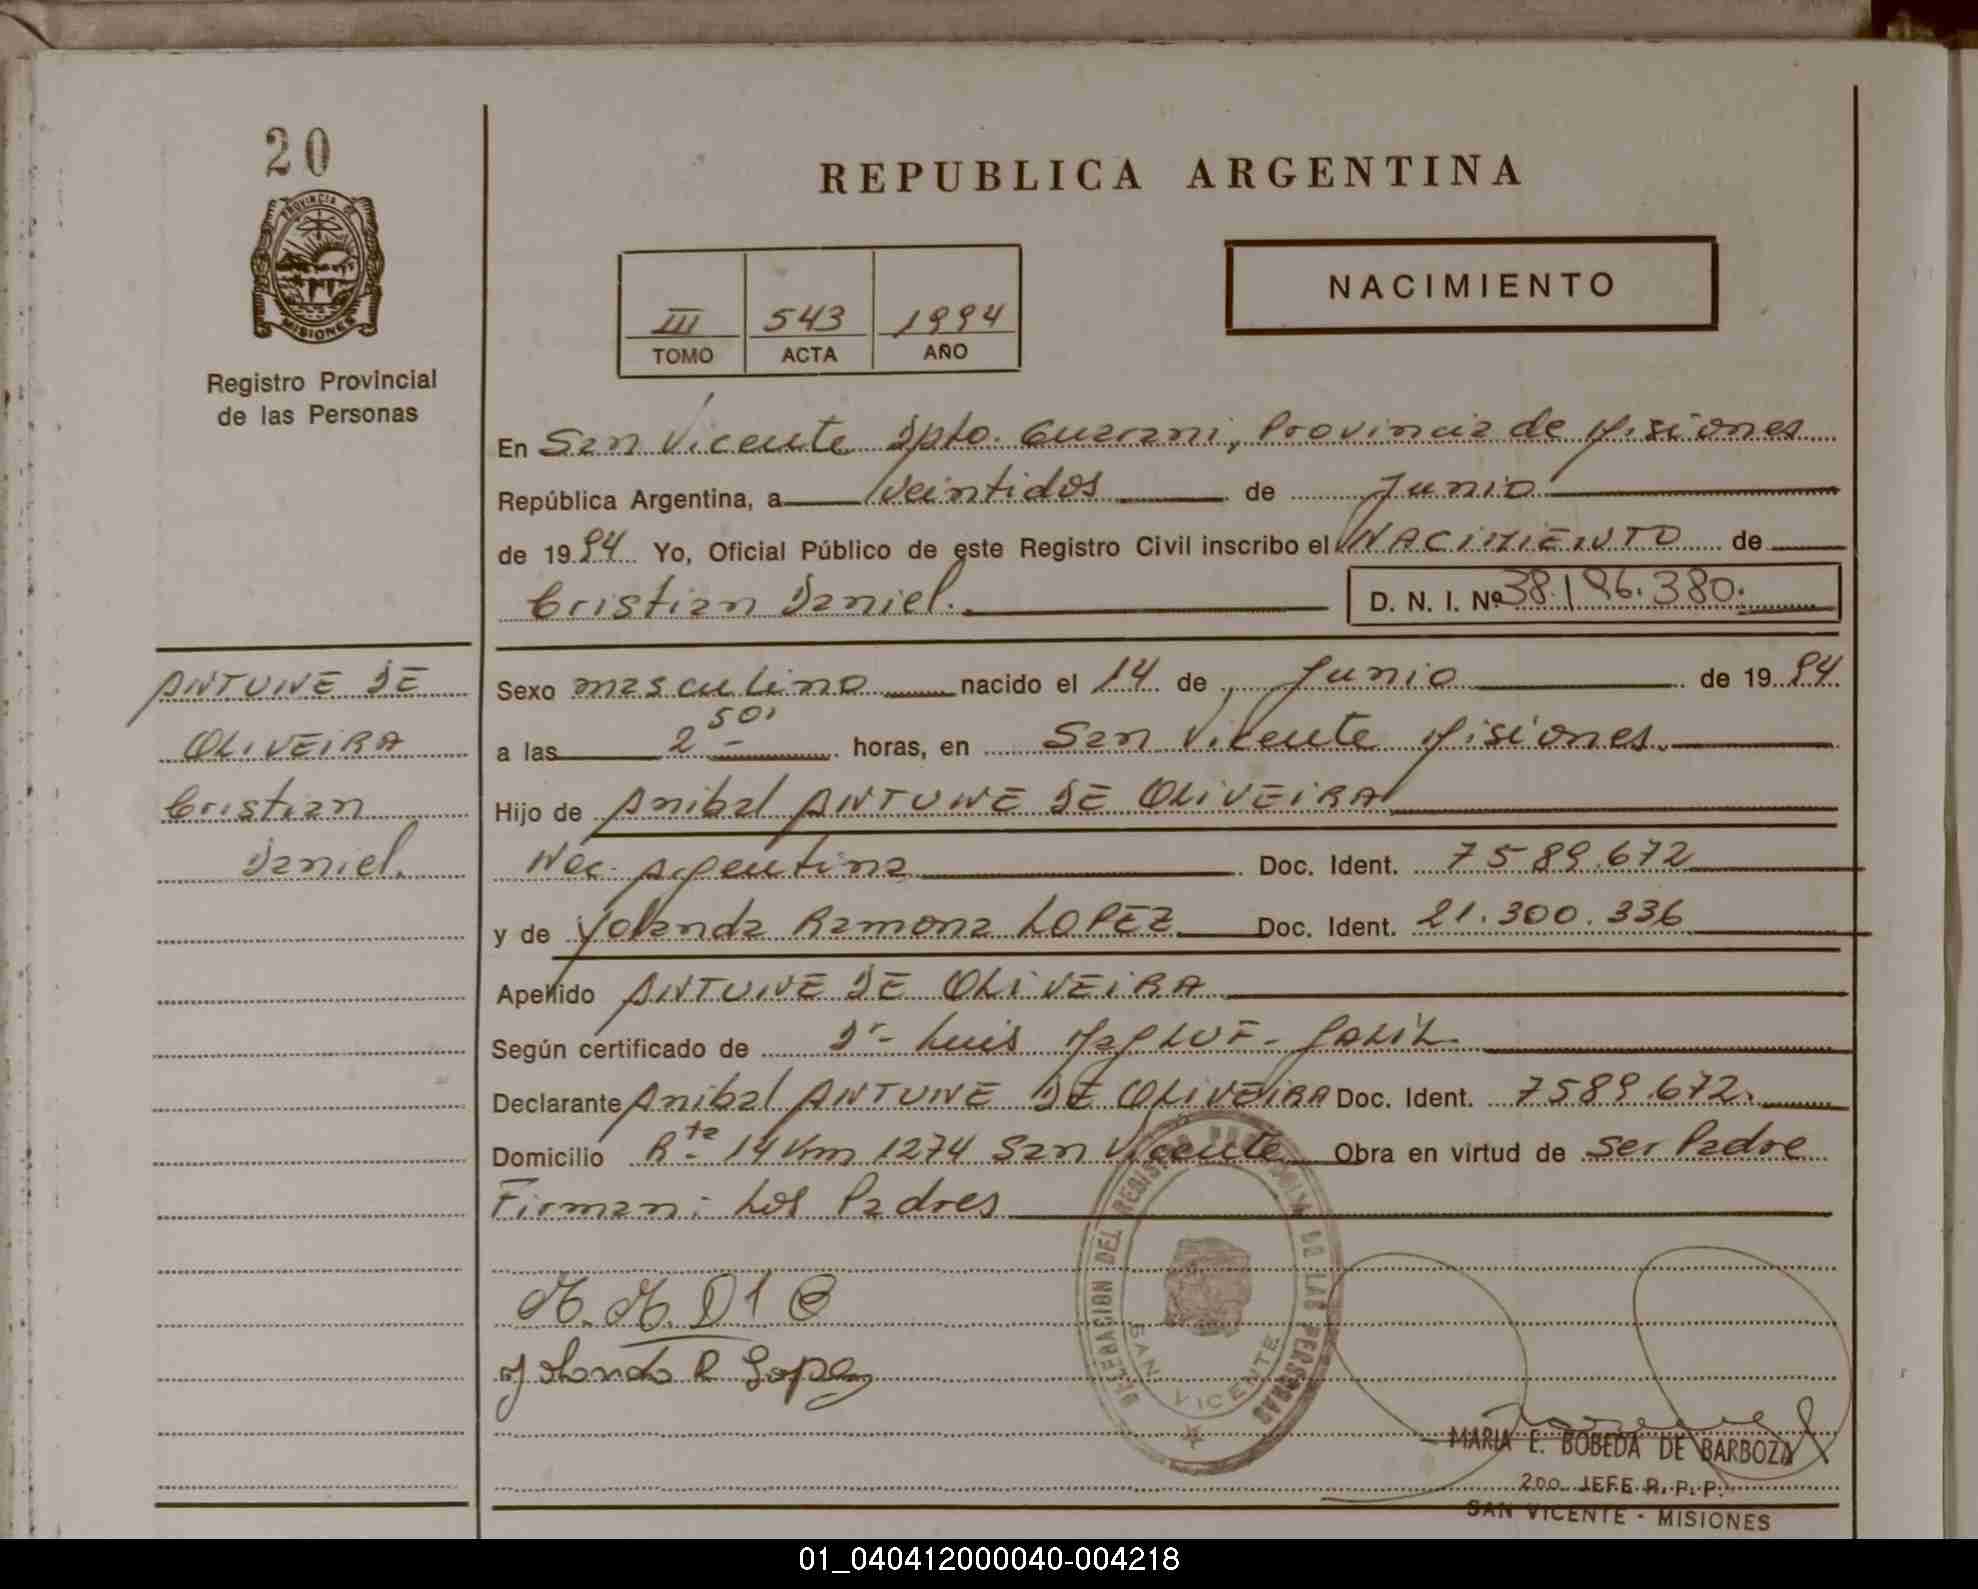 20
PROVINCIA DE
MISIONES
Registro Provincial
de las Personas
REPUBLICA ARGENTINA
NACIMIENTO
III 543 1994
TOMO ACTA AÑO
En San Vicente Dpto. Guarani, Provincia de Misiones
República Argentina, a veintidos de Junio
de 1994 Yo, Oficial Público de este Registro Civil inscribo el NACIMIENTO de
Cristian Daniel. D. N. I. Nº 38.196.380.
ANTUNE DE
OLIVEIRA
Cristian
Daniel.
Sexo masculino nacido el 14 de Junio de 1994
a las 2 50' horas, en San Vicente Misiones.
Hijo de Anibal ANTUNE DE OLIVEIRA
Nac. Argentina Doc. Ident. 7589.672
y de Yolanda Ramona LOPEZ Doc. Ident. 21.300.336
Apellido ANTUNE DE OLIVEIRA
Según certificado de Dr. Luis
Declarante Anibal ANTUNE DE OLIVEIRA Doc. Ident. 7589.672.
Domicilio Rta 14 Km 1274 San Vicente Obra en virtud de ser Padre
Firman: Los Padres
Yolanda R Lopez
DELEGACION DEL REGISTRO PROVINCIAL DE LAS PERSONAS
SAN VICENTE
MARIA E. BOBEDA DE BARBOZA
2do. JEFE R. P. P.
SAN VICENTE - MISIONES
01_040412000040-004218